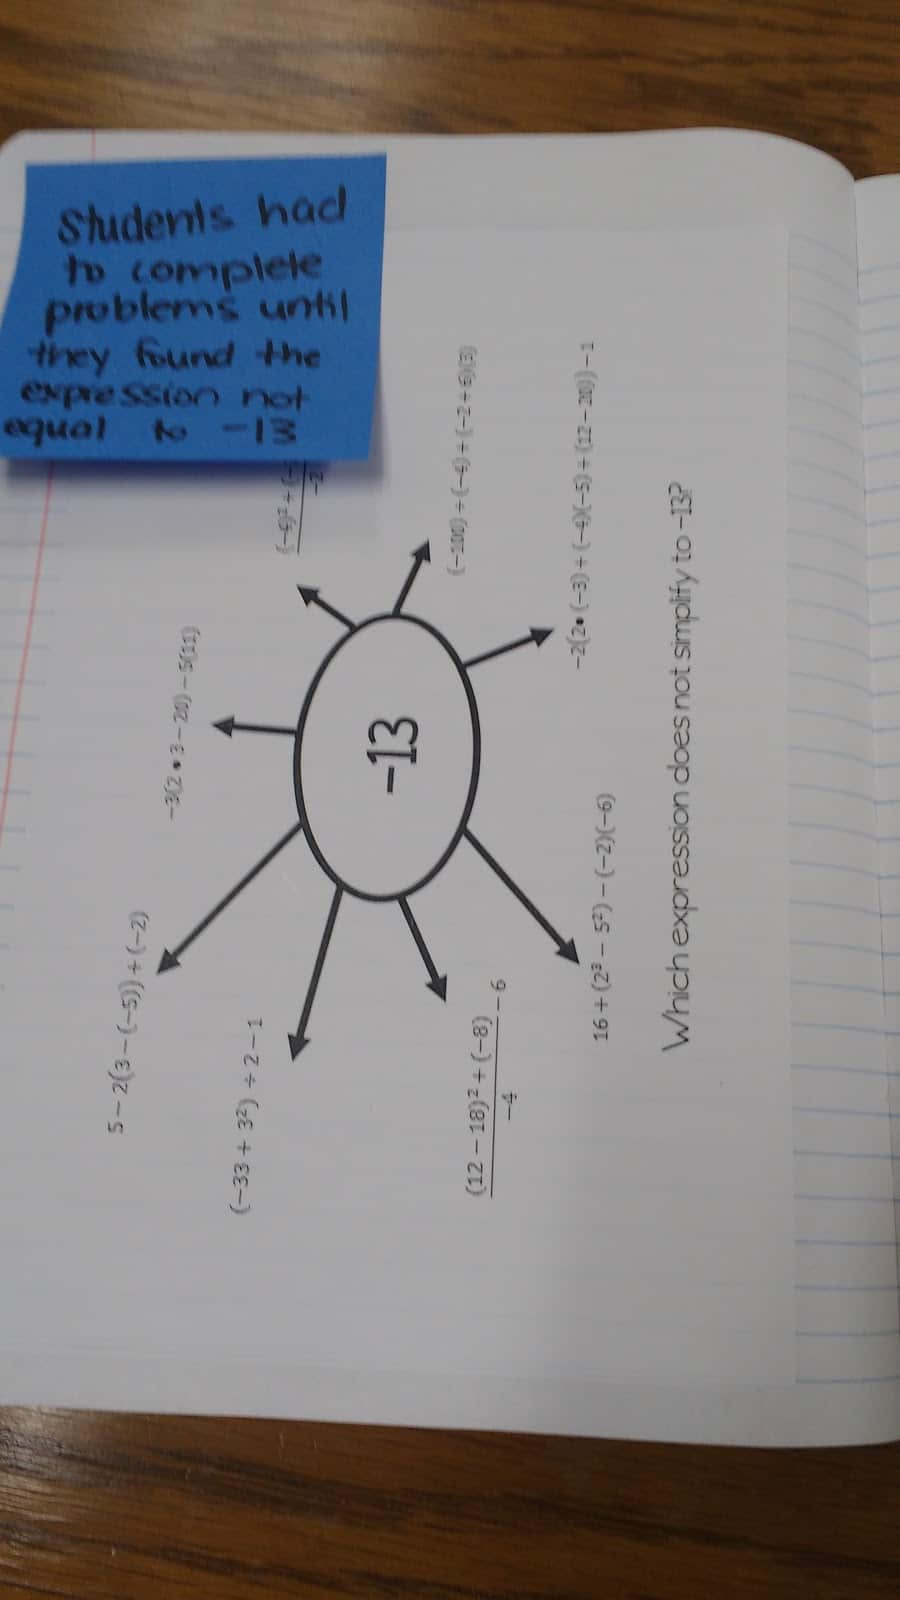 Students had
to complete
problems until
they found the
expression not
equal to -13
5 − 2(3 − (−5)) + (−2)
−3(2 • 3 − 20) − 5(11)
(−33 + 3²) ÷ 2 − 1
−13
(12 − 18)² + (−8)
−4
− 6
16 + (2³ − 5²) − (−2)(−6)
Which expression does not simplify to −13?